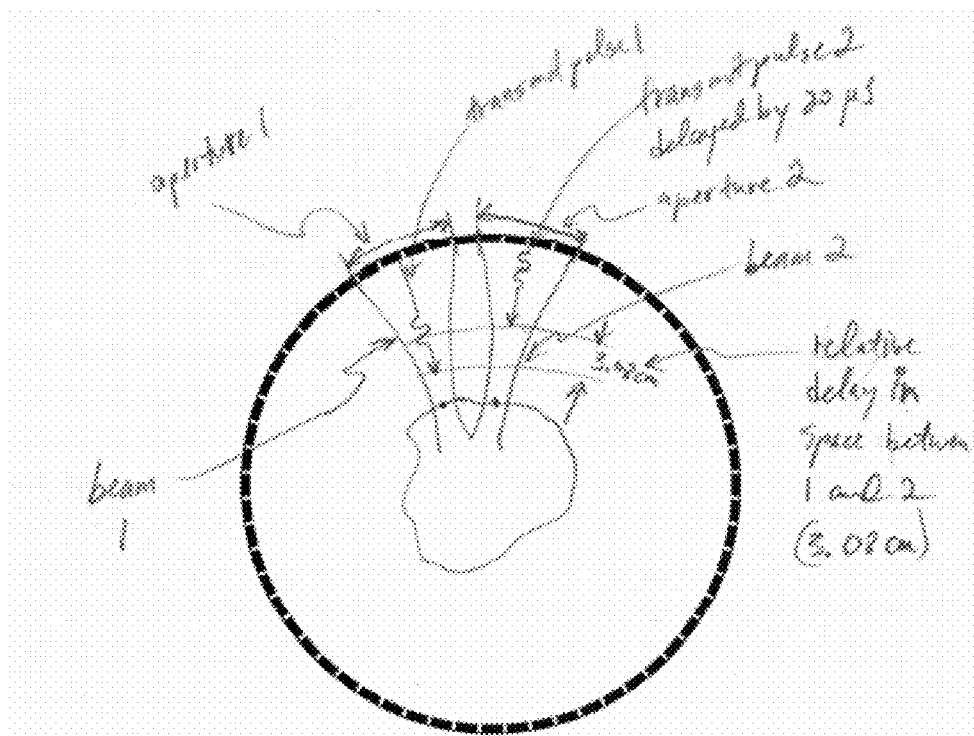 aperture 1
transmit pulse 1
transmit pulse 2
delayed by 20 µs
aperture 2
beam 2
3.08cm
relative
delay in
space between
1 and 2
(3.08 cm)
beam
1